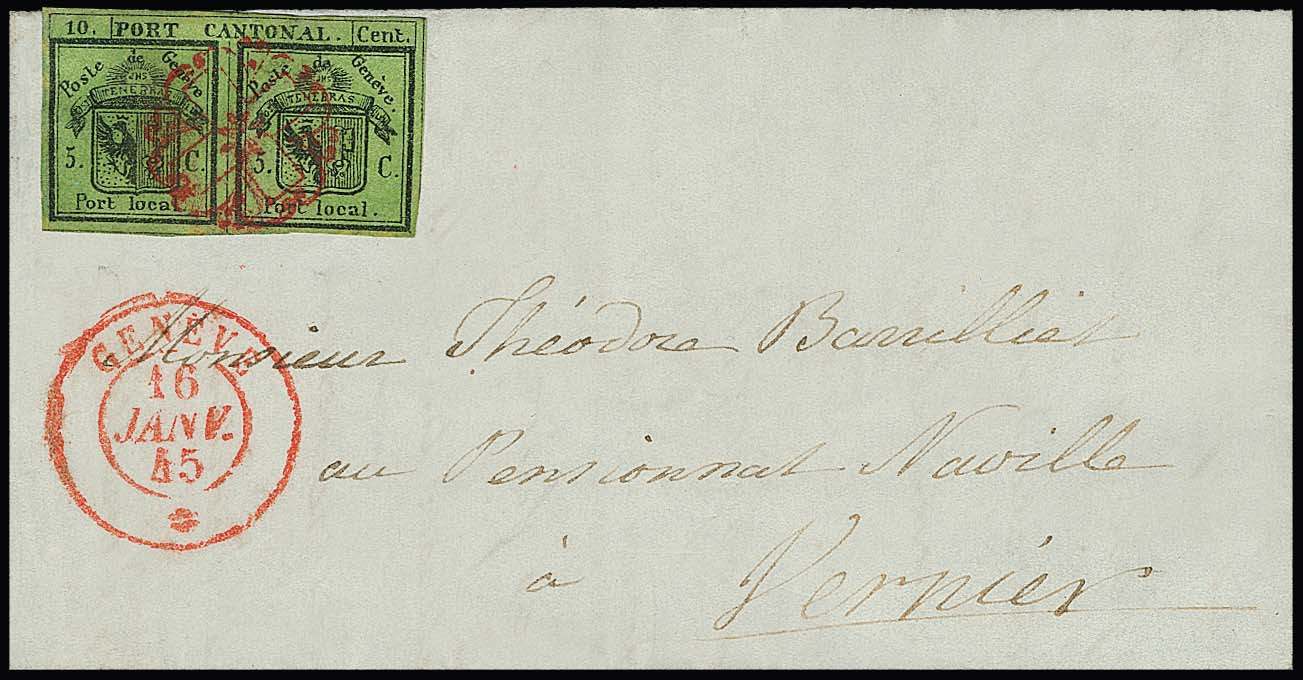 10. PORT CANTONAL. Cent.
Poste de Genève Poste de Genève.
JHS JHS
TENEBRAS TENEBRAS
5. C. 5. C.
Port local Port local.
GENÈVE
16
JANV.
45
Monsieur Théodore Barrilliet
au Pensionnat Naville
à Vernier